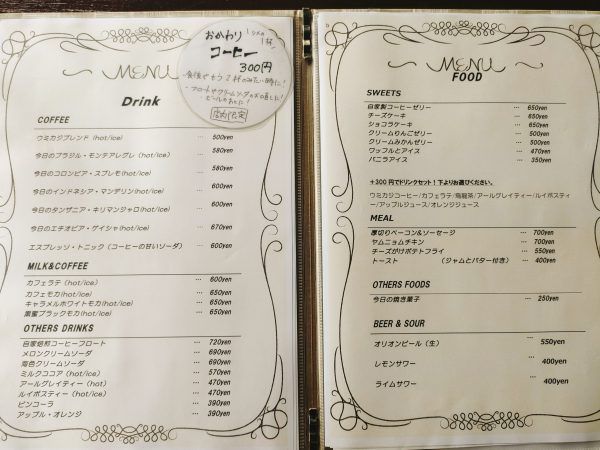 MENU
Drink
おかわり
コーヒー
300円
・食後でもう1杯のみたい時に!
・フロートやクリームソーダの
店内限定
COFFEE
ウミカジブレンド (hot/ice) … 500yen
今日のブラジル・モンテアレグレ (hot/ice) … 580yen
今日のコロンビア・スプレモ(hot/ice) … 580yen
今日のインドネシア・マンデリン(hot/ice) … 600yen
今日のタンザニア・キリマンジャロ(hot/ice) … 600yen
今日のエチオピア・ゲイシャ(hot/ice) … 670yen
エスプレッソ・トニック (コーヒーの甘いソーダ) … 600yen
MILK&COFFEE
カフェラテ (hot/ice) … 600yen
カフェモカ(hot/ice) … 650yen
キャラメルホワイトモカ(hot/ice) … 650yen
黒蜜ブラックモカ(hot/ice) … 650yen
OTHERS DRINKS
自家焙煎コーヒーフロート … 720yen
メロンクリームソーダ … 690yen
海色クリームソーダ … 690yen
ミルクココア (hot/ice) … 570yen
アールグレイティー (hot) … 470yen
ルイボスティー (hot/ice) … 470yen
ビンコーラ … 390yen
アップル・オレンジ … 390yen
MENU
FOOD
SWEETS
自家製コーヒーゼリー … 650yen
チーズケーキ … 650yen
ショコラケーキ … 650yen
クリームりんごゼリー … 500yen
クリームみかんゼリー … 500yen
ワッフルとアイス … 470yen
バニラアイス … 350yen
+300円でドリンクセット!下よりお選びください。
ウミカジコーヒー/カフェラテ/烏龍茶/アールグレイティー/ルイボスティ
ー/アップルジュース/オレンジジュース
MEAL
厚切りベーコン&ソーセージ … 700yen
ヤムニョムチキン … 700yen
チーズがけポテトフライ … 550yen
トースト (ジャムとバター付き) … 400yen
OTHERS FOODS
今日の焼き菓子 … 250yen
BEER & SOUR
オリオンビール (生) … 550yen
レモンサワー … 400yen
ライムサワー … 400yen